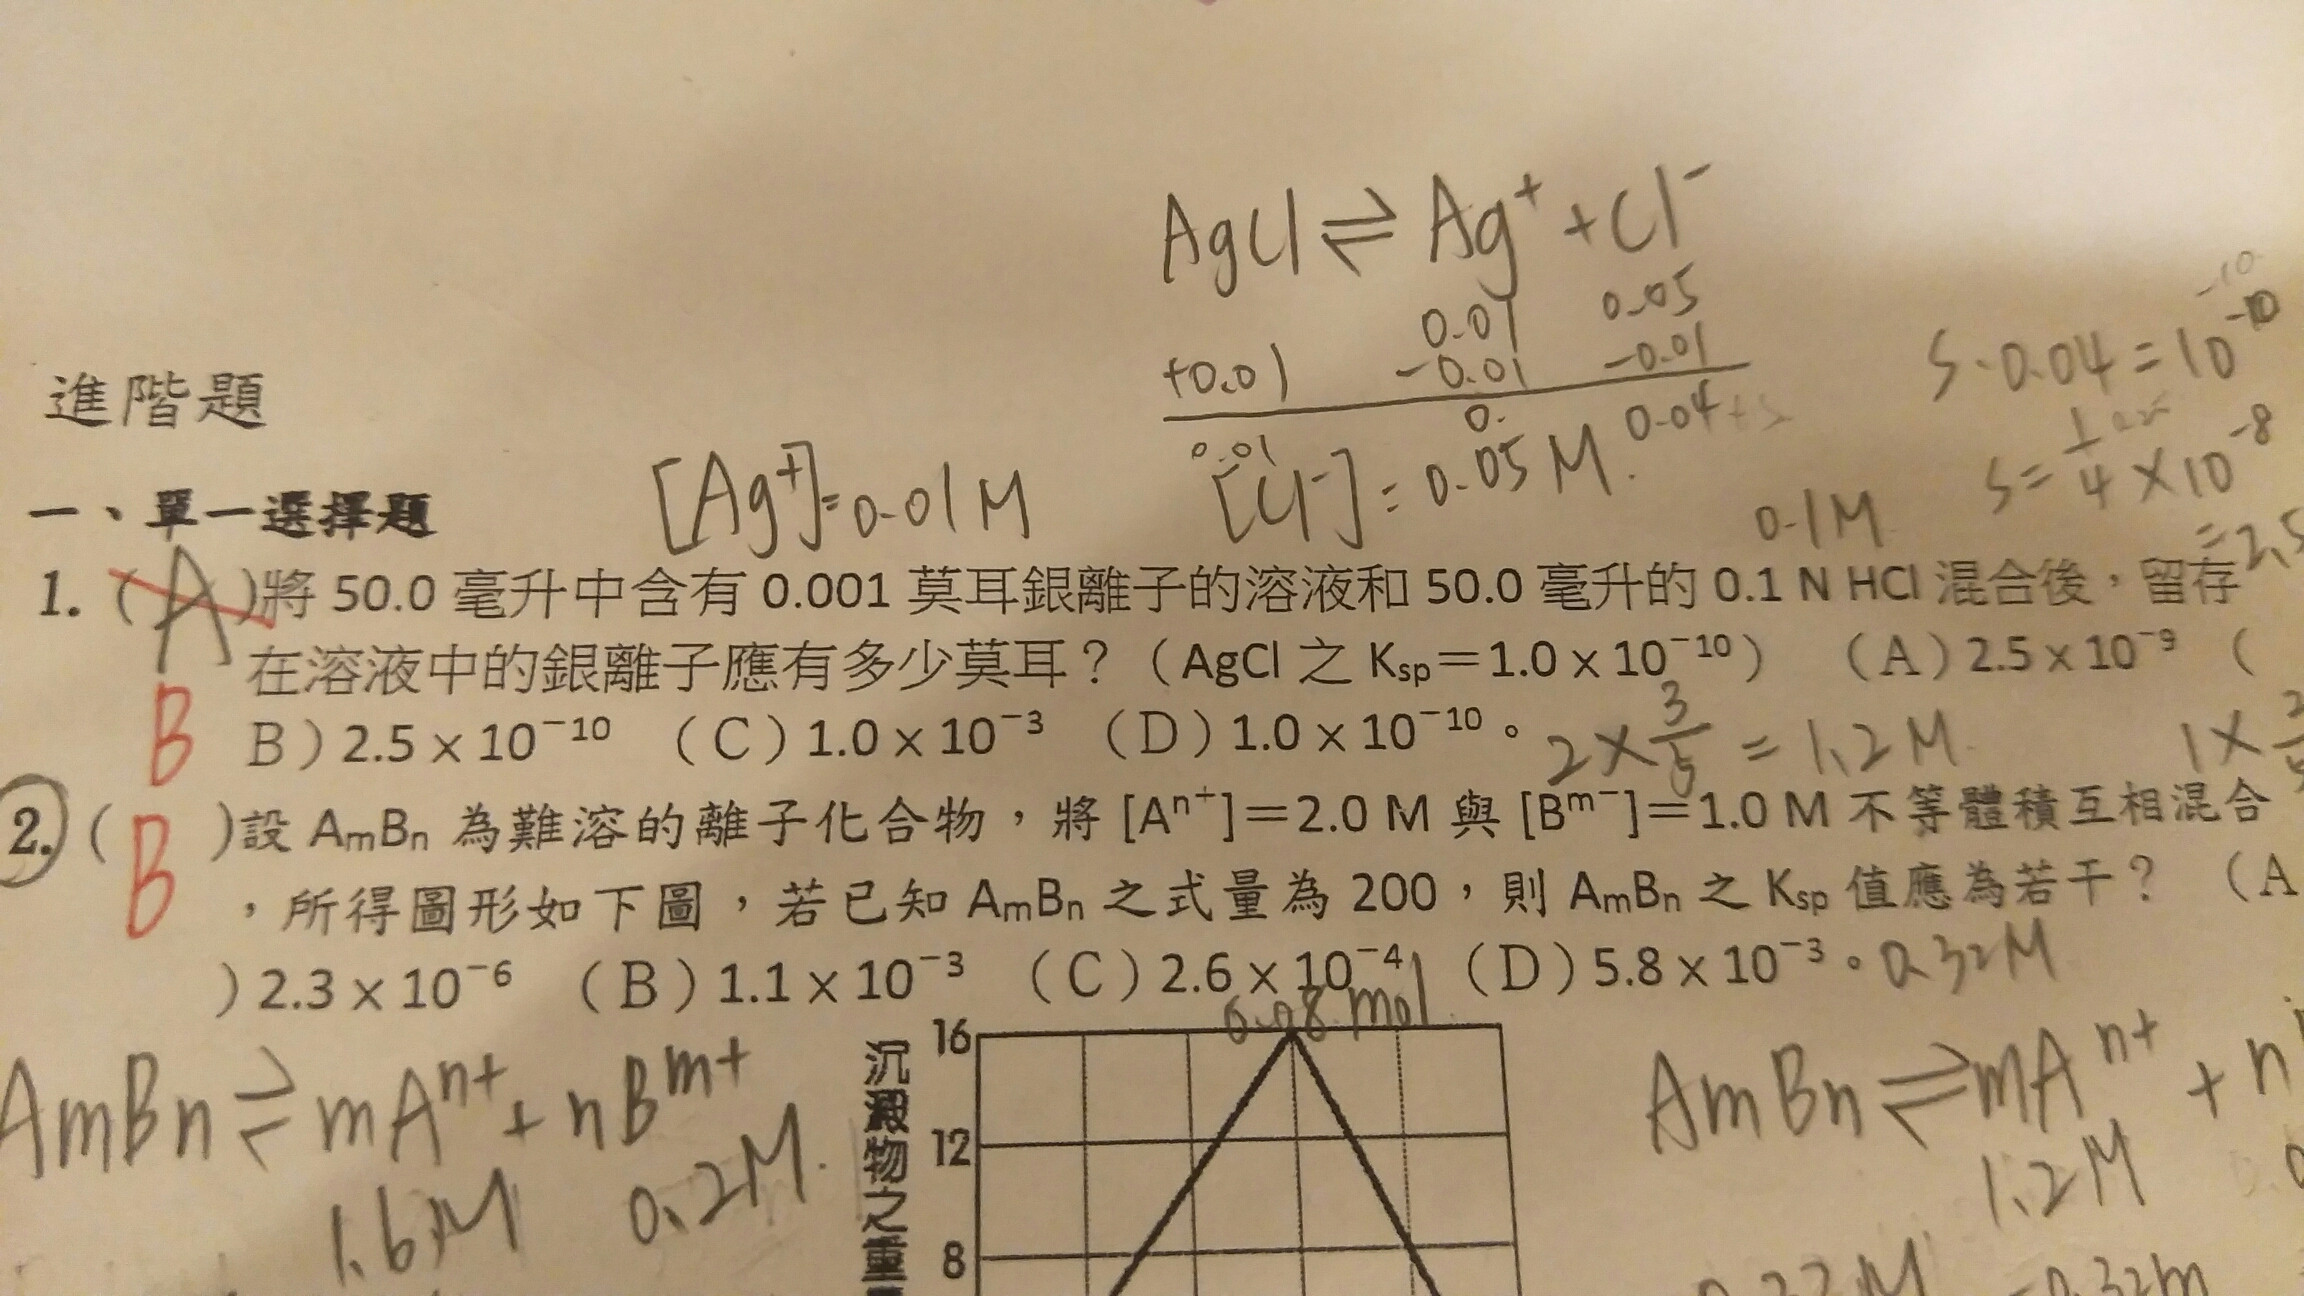 AgCl ⇌ Ag⁺ + Cl⁻
0.01 0.05
+0.01 -0.01 -0.01
0.01 0. 0.04+s
S·0.04=10⁻¹⁰
S=1/4×10⁻⁸
=2.5
進階題
[Ag⁺]=0.01M [Cl⁻]=0.05M.
一、單一選擇題
0.1M
1.(A)將 50.0 毫升中含有 0.001 莫耳銀離子的溶液和 50.0 毫升的 0.1 N HCl 混合後，留存
在溶液中的銀離子應有多少莫耳？（AgCl 之 Ksp＝1.0 x 10⁻¹⁰） （A）2.5 x 10⁻⁹ （
B B）2.5 x 10⁻¹⁰ （C）1.0 x 10⁻³ （D）1.0 x 10⁻¹⁰。
2×3/5=1.2M
1×
2.(B)設 AmBn 為難溶的離子化合物，將 [Aⁿ⁺]＝2.0 M 與 [Bᵐ⁻]＝1.0 M 不等體積互相混合
，所得圖形如下圖，若已知 AmBn 之式量為 200，則 AmBn 之 Ksp 值應為若干？ （A
）2.3 x 10⁻⁶ （B）1.1 x 10⁻³ （C）2.6 x 10⁻⁴ （D）5.8 x 10⁻³。
0.32M
0.08 mol
AmBn ⇌ mAⁿ⁺ + nBᵐ⁺
1.6M 0.2M.
沉澱物之重
16
12
8
AmBn ⇌ mAⁿ⁺ + n
1.2M